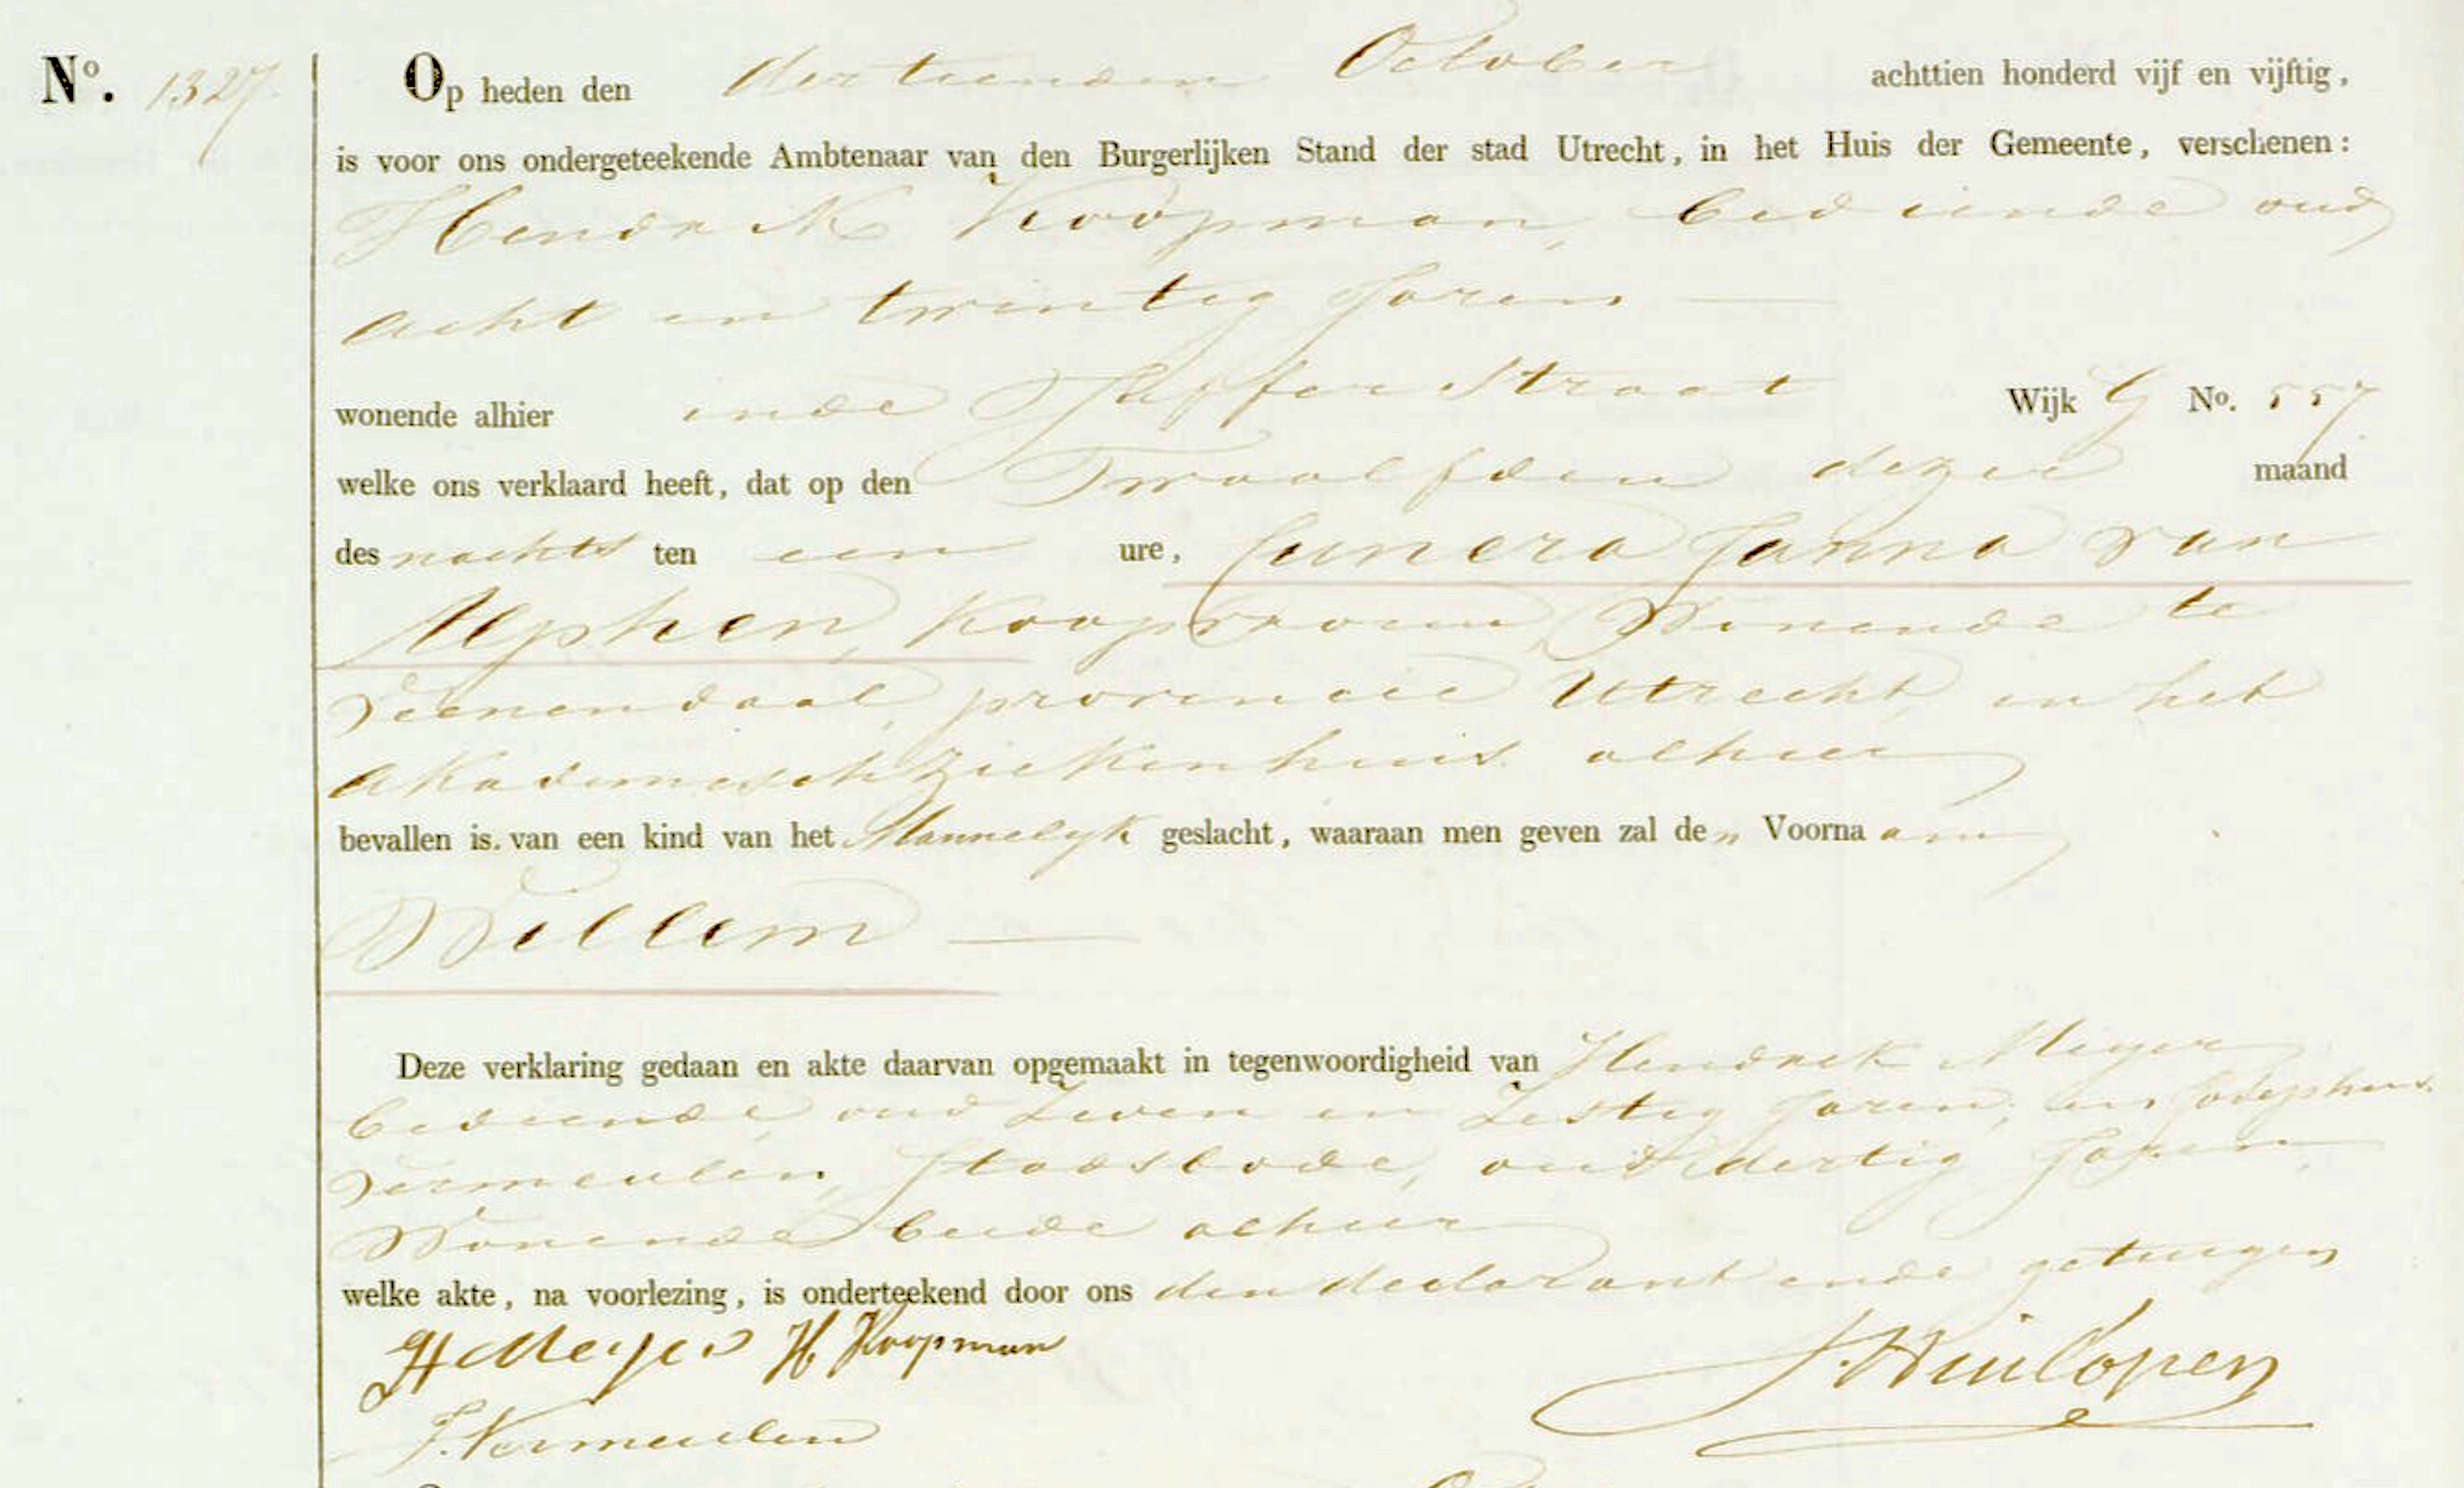 No. 1327 Op heden den dertienden October achttien honderd vijf en vijftig,
is voor ons ondergeteekende Ambtenaar van den Burgerlijken Stand der stad Utrecht, in het Huis der Gemeente, verschenen:
Hendrik Koopman, bediende oud
acht en twintig Jaren
wonende alhier inde Jufferstraat Wijk G No. 557
welke ons verklaard heeft, dat op den Twaalfden dezer maand
des nachts ten een ure, Cunera Janna van
Alphen, Koopvrouw, Wonende te
Veenendaal, provincie Utrecht, in het
Akademisch Ziekenhuis alhier
bevallen is van een kind van het Mannelyk geslacht, waaraan men geven zal den Voornaam
Willem
Deze verklaring gedaan en akte daarvan opgemaakt in tegenwoordigheid van Hendrik Meyer
bediende, oud Zeven en Zestig Jaren, en Josephus
Vermeulen, Stadsbode, oud dertig Jaren,
Wonende beide alhier
welke akte, na voorlezing, is onderteekend door ons den declarant ende getuigen
H Meyer H Koopman
J. Vermeulen